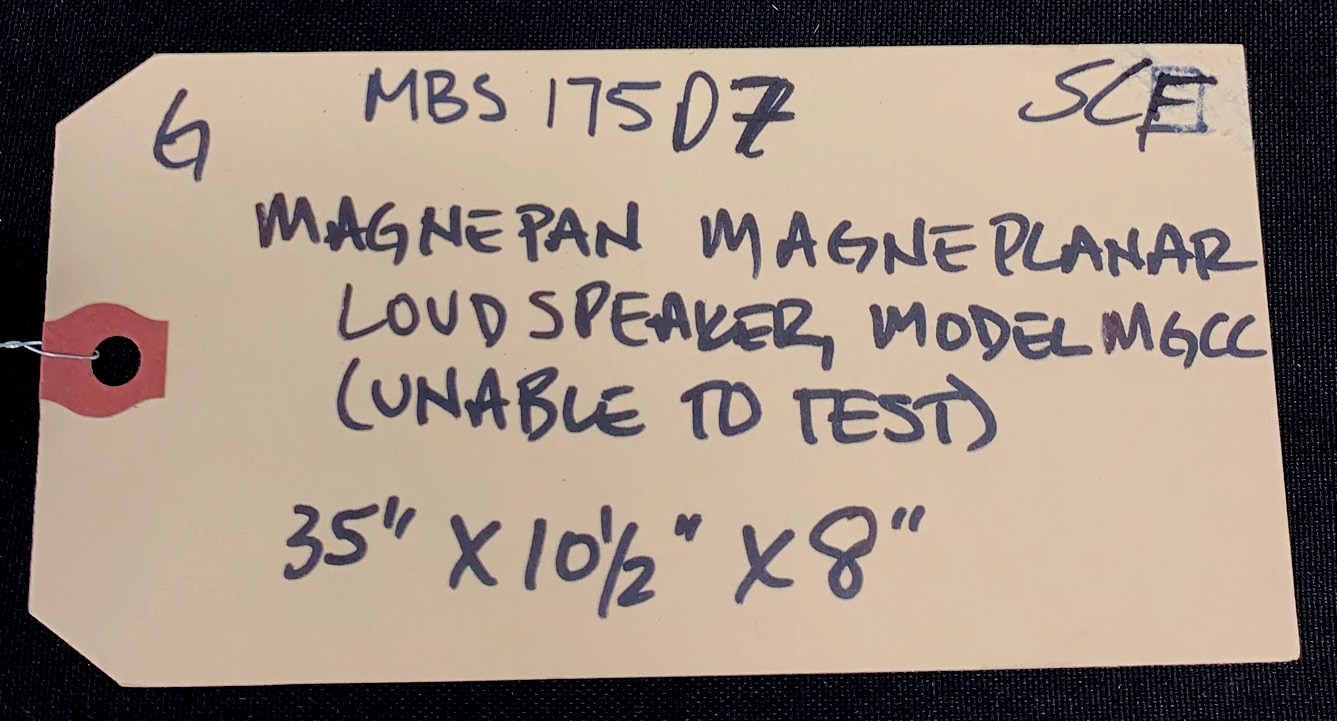 G MBS 175D7 SCE
MAGNEPAN MAGNEPLANAR
LOUDSPEAKER, MODEL MGCC
(UNABLE TO TEST)
35" X 10 1/2" X 8"